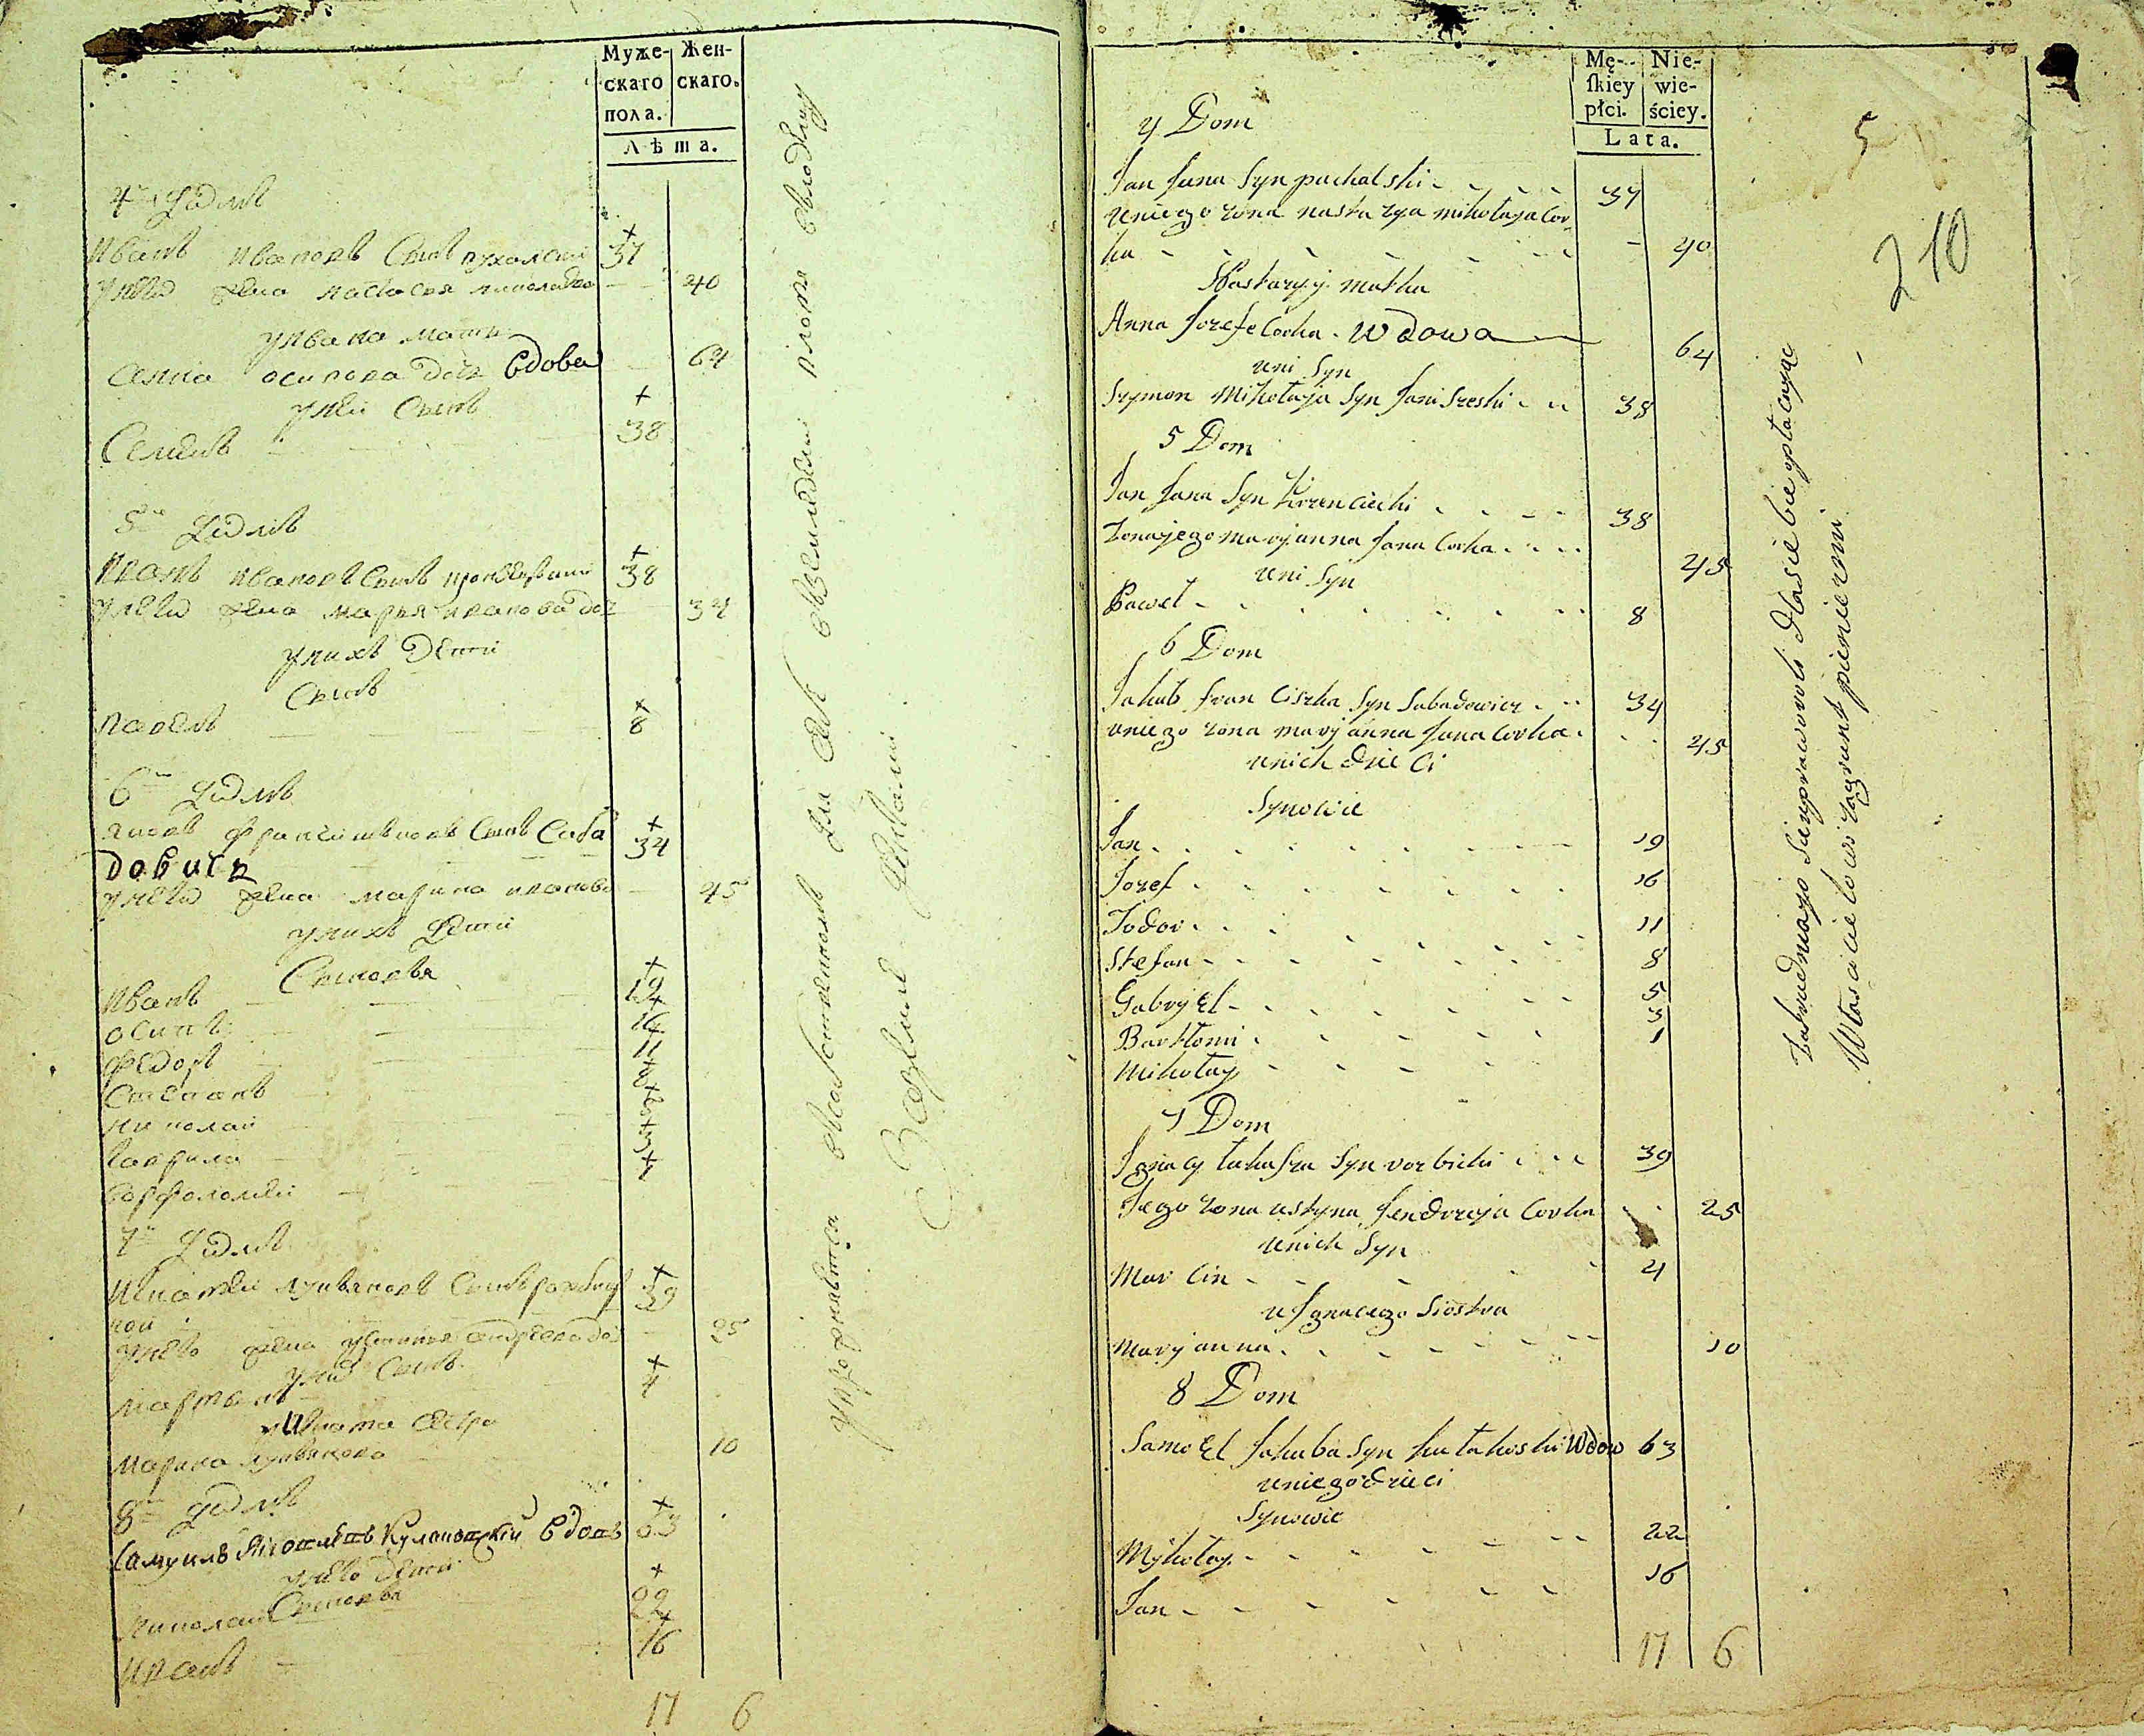 Муже-
скаго
пола.
Жен-
скаго.
Лѣта.
4й Домъ
Иванъ Ивановъ Сынъ пухалский 37
унево жена настасея николаева 40
уивана мати
Анна осипова дочь вдова 64
унеи Сынъ
Семионъ 38
5й Домъ
Иванъ Ивановъ Сынъ 38
унево жена марья иванова доч 34
унихъ дети
Сынъ
павелъ 8
6й Домъ
яковъ Францишковъ Сынъ Саба 34
довичь
унево жена марина иванова 45
унихъ дети
Сыновья
Иванъ 19
осипъ 16
Федоръ 11
Степанъ 8
николай 5
гаврила 3
варфоломеи 1
7й Домъ
Игнатеи лукьяновъ Сынъ 39
унево жена устинья андреева до 25
унихъ Сынъ
мартынъ 4
уИгната сестра
марина лукьянова 10
8й Домъ
Самуилъ Яковлевъ Кулаковский вдовъ 63
унево дети
Сыновья
николай 22
Иванъ 16
17 6
упражняются для себя
Мę-
skiey
płci.
Nie-
wie-
ściey.
Lata.
5
210
4 Dom
Jan Jana Syn puchalski 37
uniego zona nastazya mikołaja Cor
ka 40
Nastazyj matka
Anna Jozefa Corka Wdowa 64
uni Syn
Szymon Mikołaja Syn Janiszeski 38
5 Dom
Jan Jana Syn Krzenciecki 38
Zonajego maryjanna Jana Corka 45
uni Syn
Paweł 8
6 Dom
Jakub franciszka Syn Sabadowicz 34
uniego zona maryjanna Jana Corka 45
unich dzieci
Synowie
Jan 19
Jozef 16
Todor 11
Stefan 8
Gabryel 5
Bartłomi 3
Mikołay 1
7 Dom
Ignacy łukasza Syn vorbicki 39
Jego zona ustyna Jendrzeja Corka 25
unich Syn
Marcin 4
u Ignacego Siostra
Maryjanna 10
8 Dom
Samoel Jakuba Syn kułakoski Wdow 63
uniego dzieci
Synowie
Mykołay 22
Jan 16
17 6
Zatrudniaio Sieupraworoli dlasiebie opłacaiąc
Włascicielowi zagrunt pieniezmi